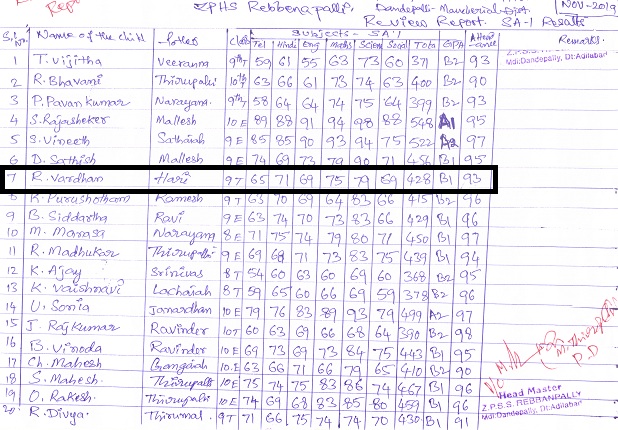 Z.P.H.S Rebbenapalli, Dandepalli - Mancherial-Dist. NOV-2019
Review Report. SA-1 Results
Subjects - SA-1
S.No Name of the child Father Class Tel Hindi Eng maths Scien Social Total GPA Atten-dance Remarks
1 T. vijitha Veeranna 9thT 59 61 55 63 73 60 371 B2 93
2 R. Bhavani Thirupathi 10thT 63 66 61 73 74 63 400 B2 90
3 P. Pavan kumar Narayana 9thT 58 64 64 74 75 64 399 B2 93
4 S. Rajasheker Mallesh 10E 89 88 91 94 98 88 548 A1 95
5 S. Vineeth Sathaiah 9E 85 85 90 93 94 75 522 A2 97
6 D. Sathish Mallesh 9E 74 69 73 79 90 71 456 B1 95
7 R. Vardhan Hari 9T 65 71 69 75 79 69 428 B1 93
8 K. Purushotham Ramesh 9T 63 70 69 64 83 66 415 B2 96
9 B. Siddartha Ravi 9E 63 74 70 73 83 66 429 B1 96
10 M. Manasa Narayana 8E 71 75 74 79 80 71 450 B1 97
11 R. Madhukar Thirupathi 9E 69 68 71 73 83 75 439 B1 94
12 K. Ajay Srinivas 8T 54 60 63 60 69 60 368 B2 95
13 K. Vaishnavi Lachaiah 8T 59 65 60 66 69 59 378 B2 96
14 U. Sonia Janardhan 10E 79 76 83 89 93 79 499 A2 97
15 J. Rajkumar Ravinder 10T 60 63 69 66 68 64 390 B2 98
16 B. Vinoda Ravinder 10E 69 73 69 73 84 75 443 B1 95
17 Ch. Mahesh Gangaiah 10E 63 66 71 66 79 65 410 B2 90
18 S. Mahesh Thirupathi 10E 75 74 75 83 86 74 467 B1 96
19 O. Rakesh Thirupathi 10E 74 69 68 83 85 80 459 B1 96
20 R. Divya Thirumal 9T 71 66 75 74 74 70 430 B1 91
Z.P.S.S. REBBANPALLY
Mdl:Dandepally, Dt:Adilabad
Head Master
Z.P.S.S. REBBANPALLY
Mdl:Dandepally, Dt:Adilabad
P.D